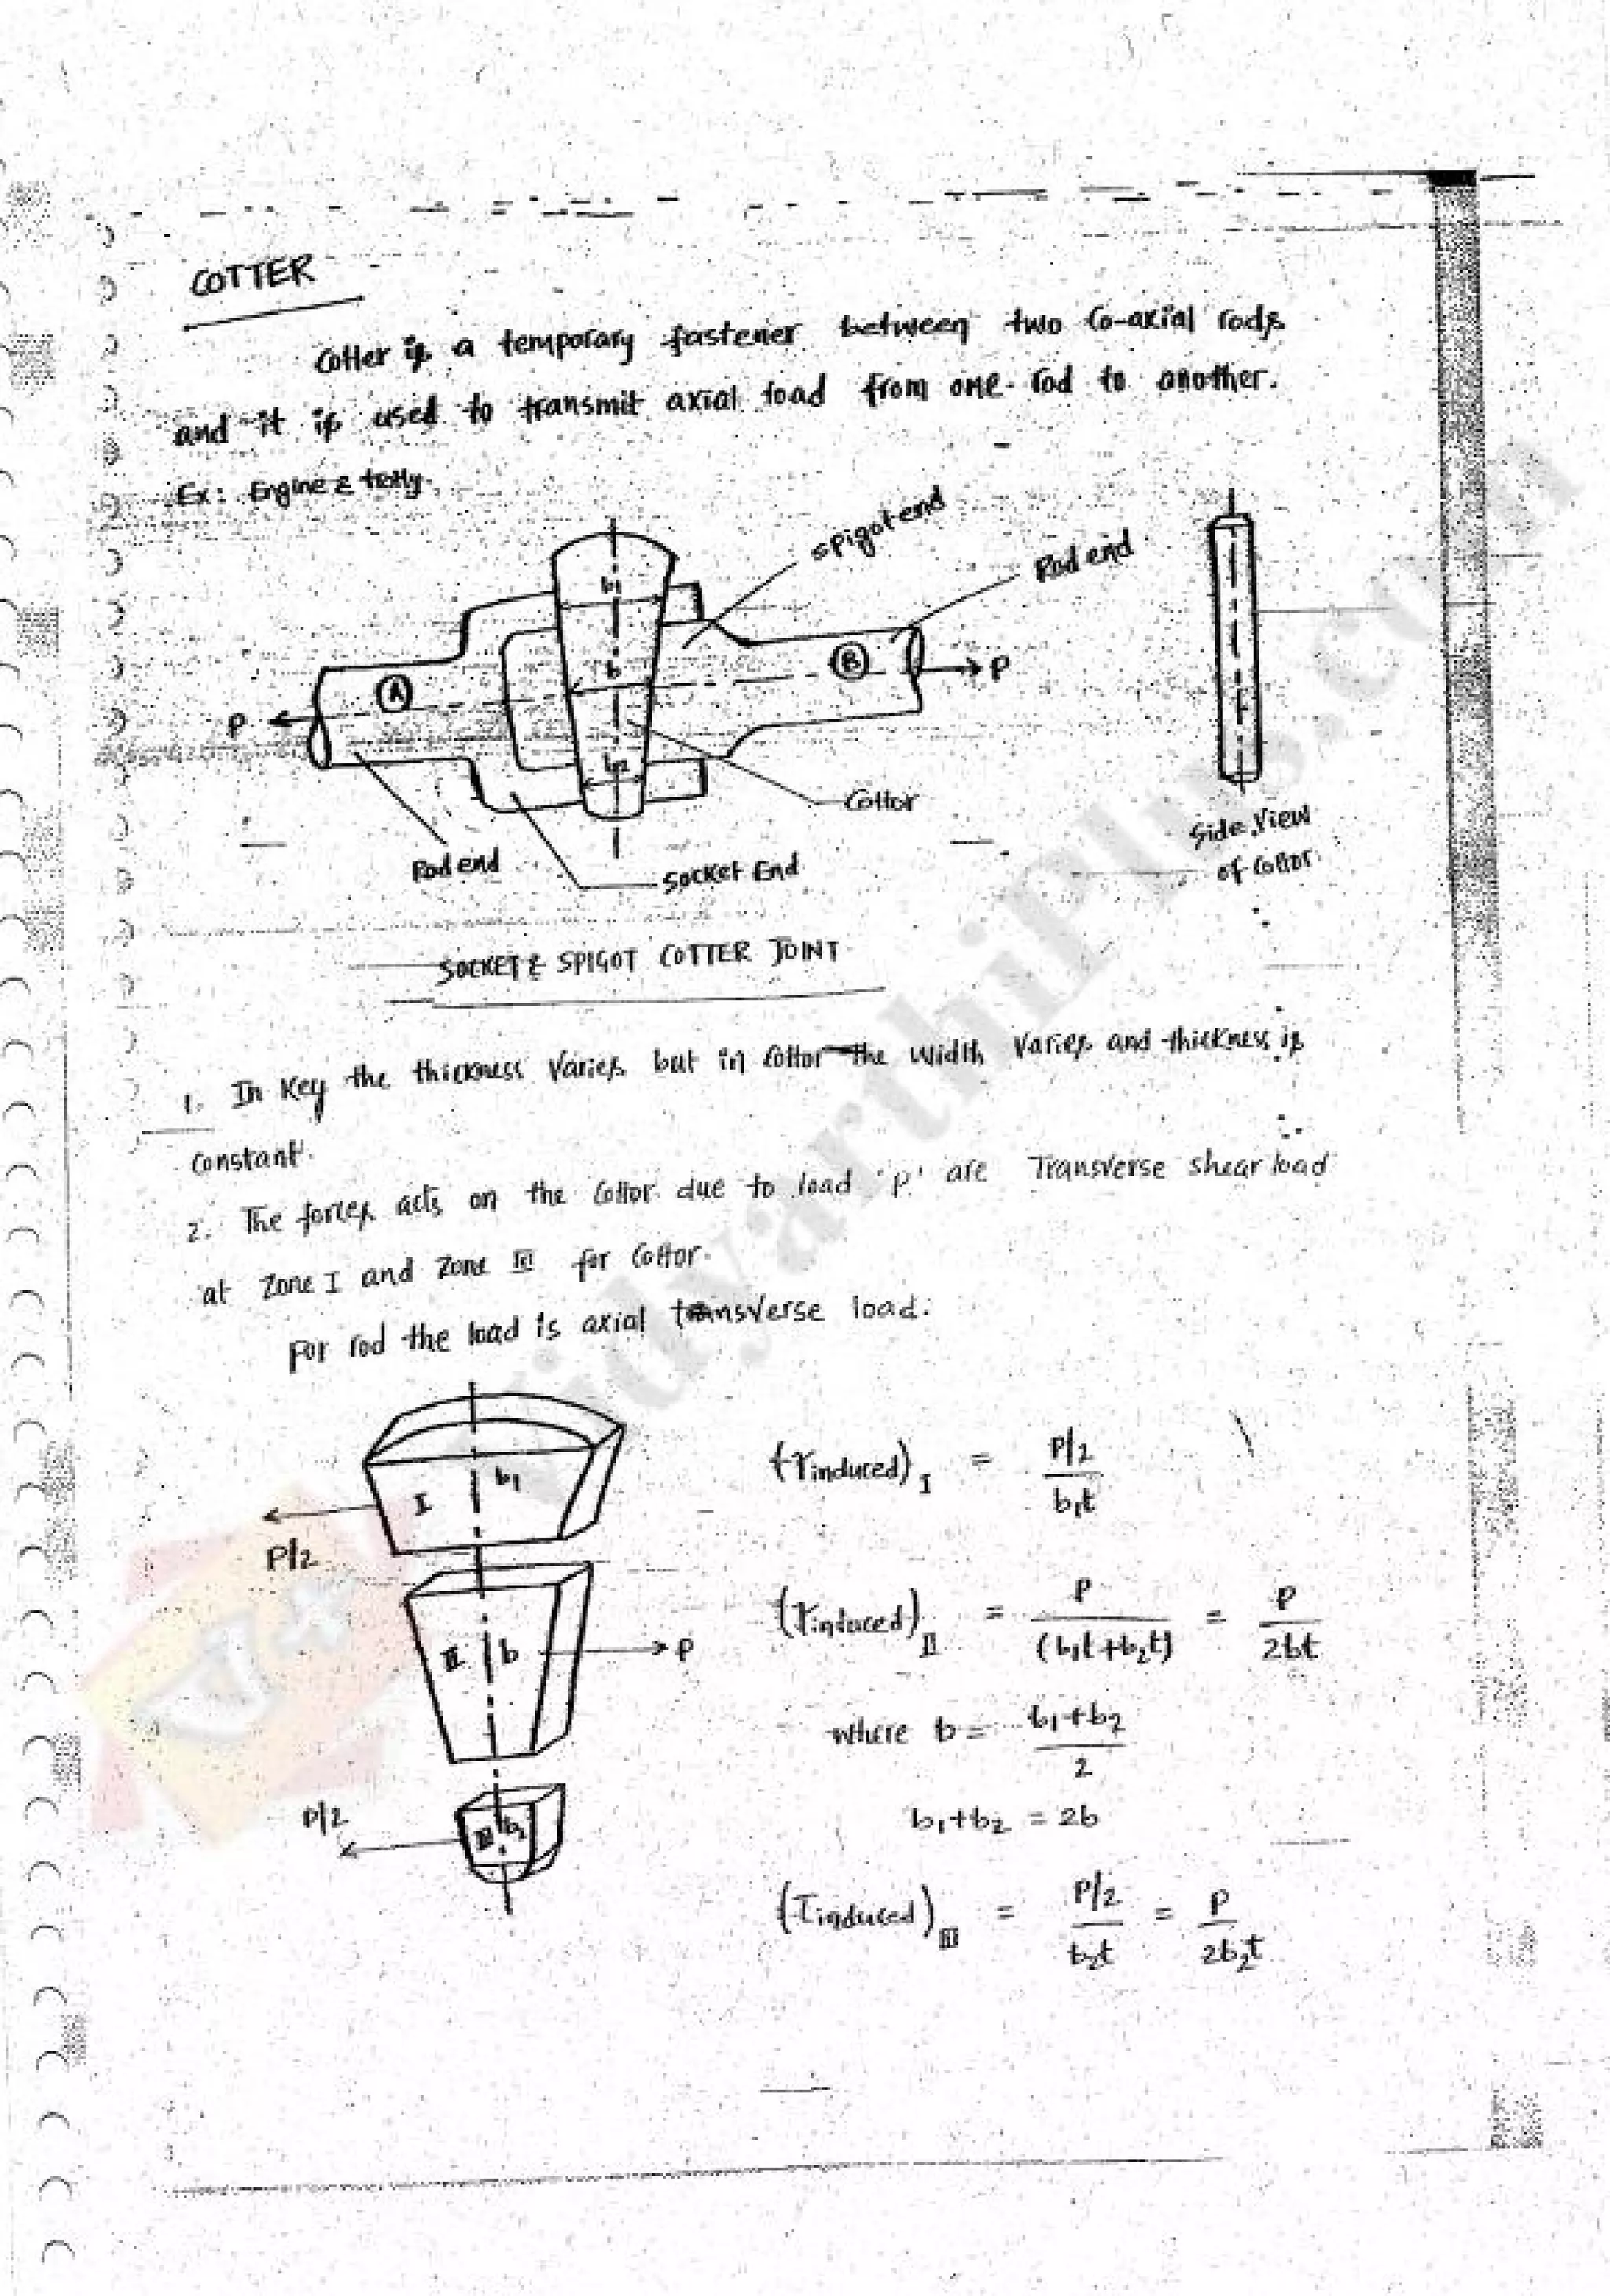 COTTER
Cotter is a temporary fastener between two Co-axial rods
and it is used to transmit axial load from one rod to another.
Ex: Engine &
spigot end
Rod end
b1
b
b2
A
B
P
P
Cottor
Rod end
Socket End
Side View
of Cottor
SOCKET & SPIGOT COTTER JOINT
1. In Key the thickness Varies but in Cottor the width varies and thickness is
Constant.
2. The forces acts on the Cottor due to load 'P' are Transverse shear load
at Zone I and Zone III for Cottor.
For rod the load is axial transverse load.
I b1
P/2
(τinduced)I = P/2 / b1t
II b
P
(τinduced)II = P / (b1t+b2t) = P / 2bt
where b = b1+b2 / 2
b1+b2 = 2b
P/2
III b2
(τinduced)III = P/2 / b2t = P / 2b2t
Vidyarthiplus.com